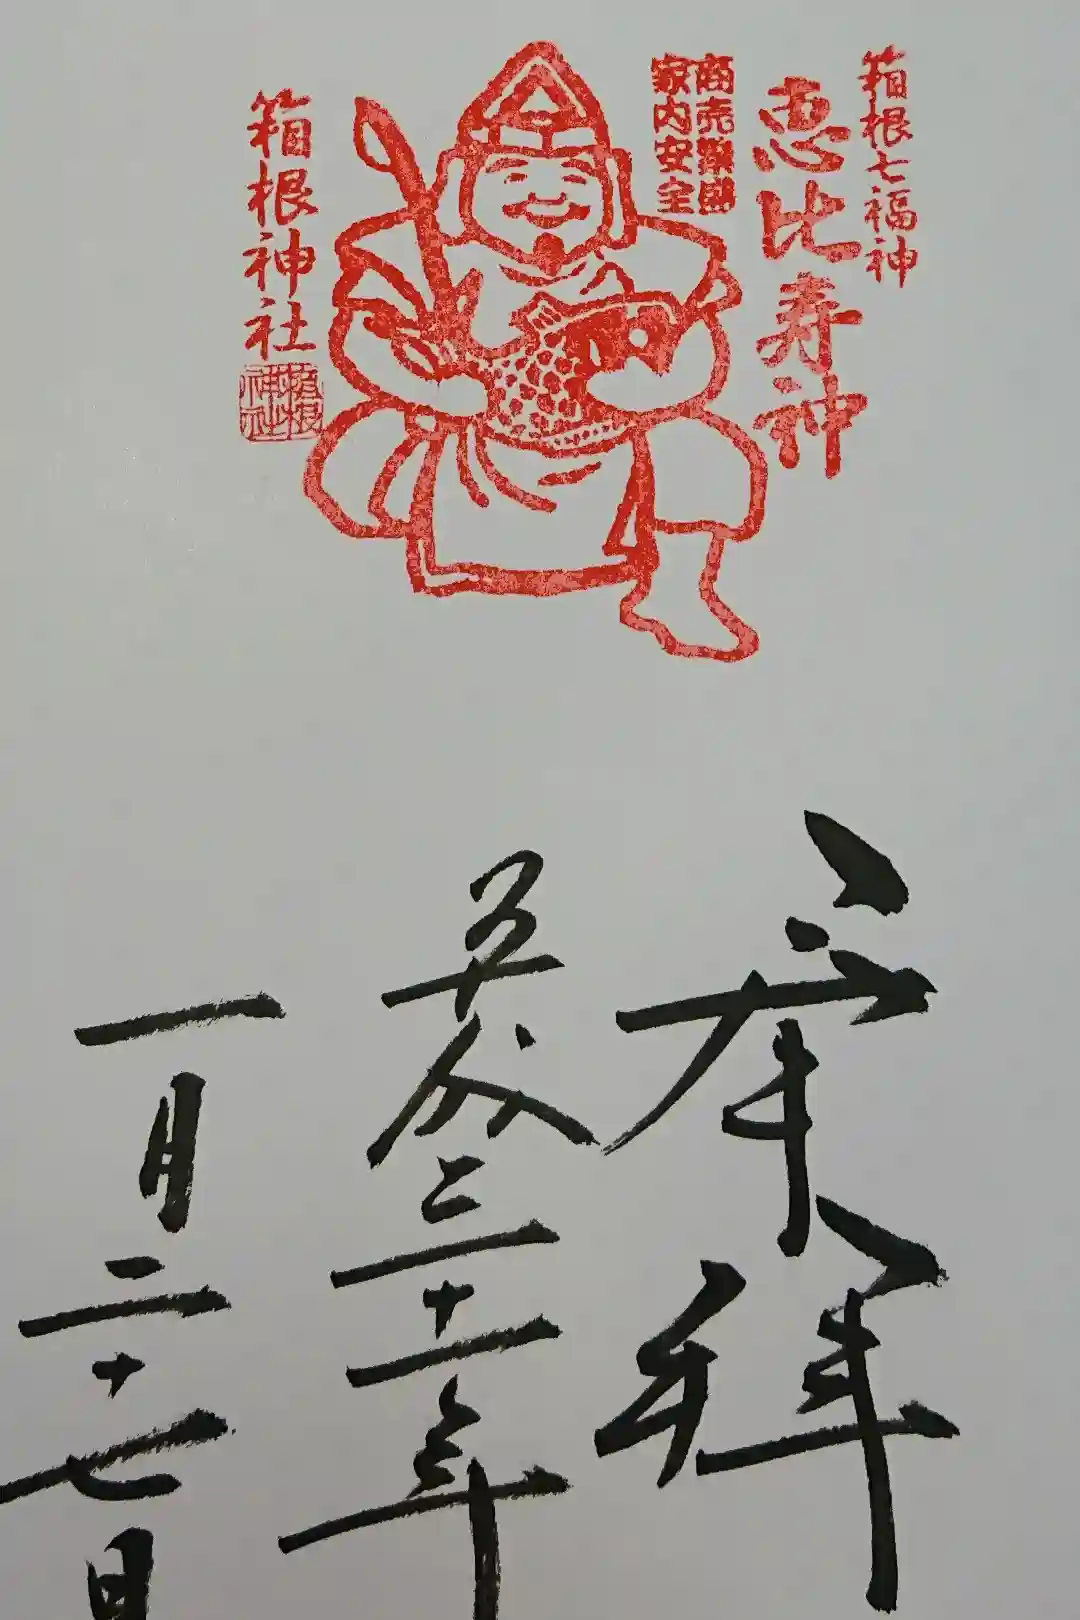 箱根七福神
恵比寿神
商売繁盛
家内安全
箱根神社
箱根神社
奉拝
平成三十一年
一月二十七日